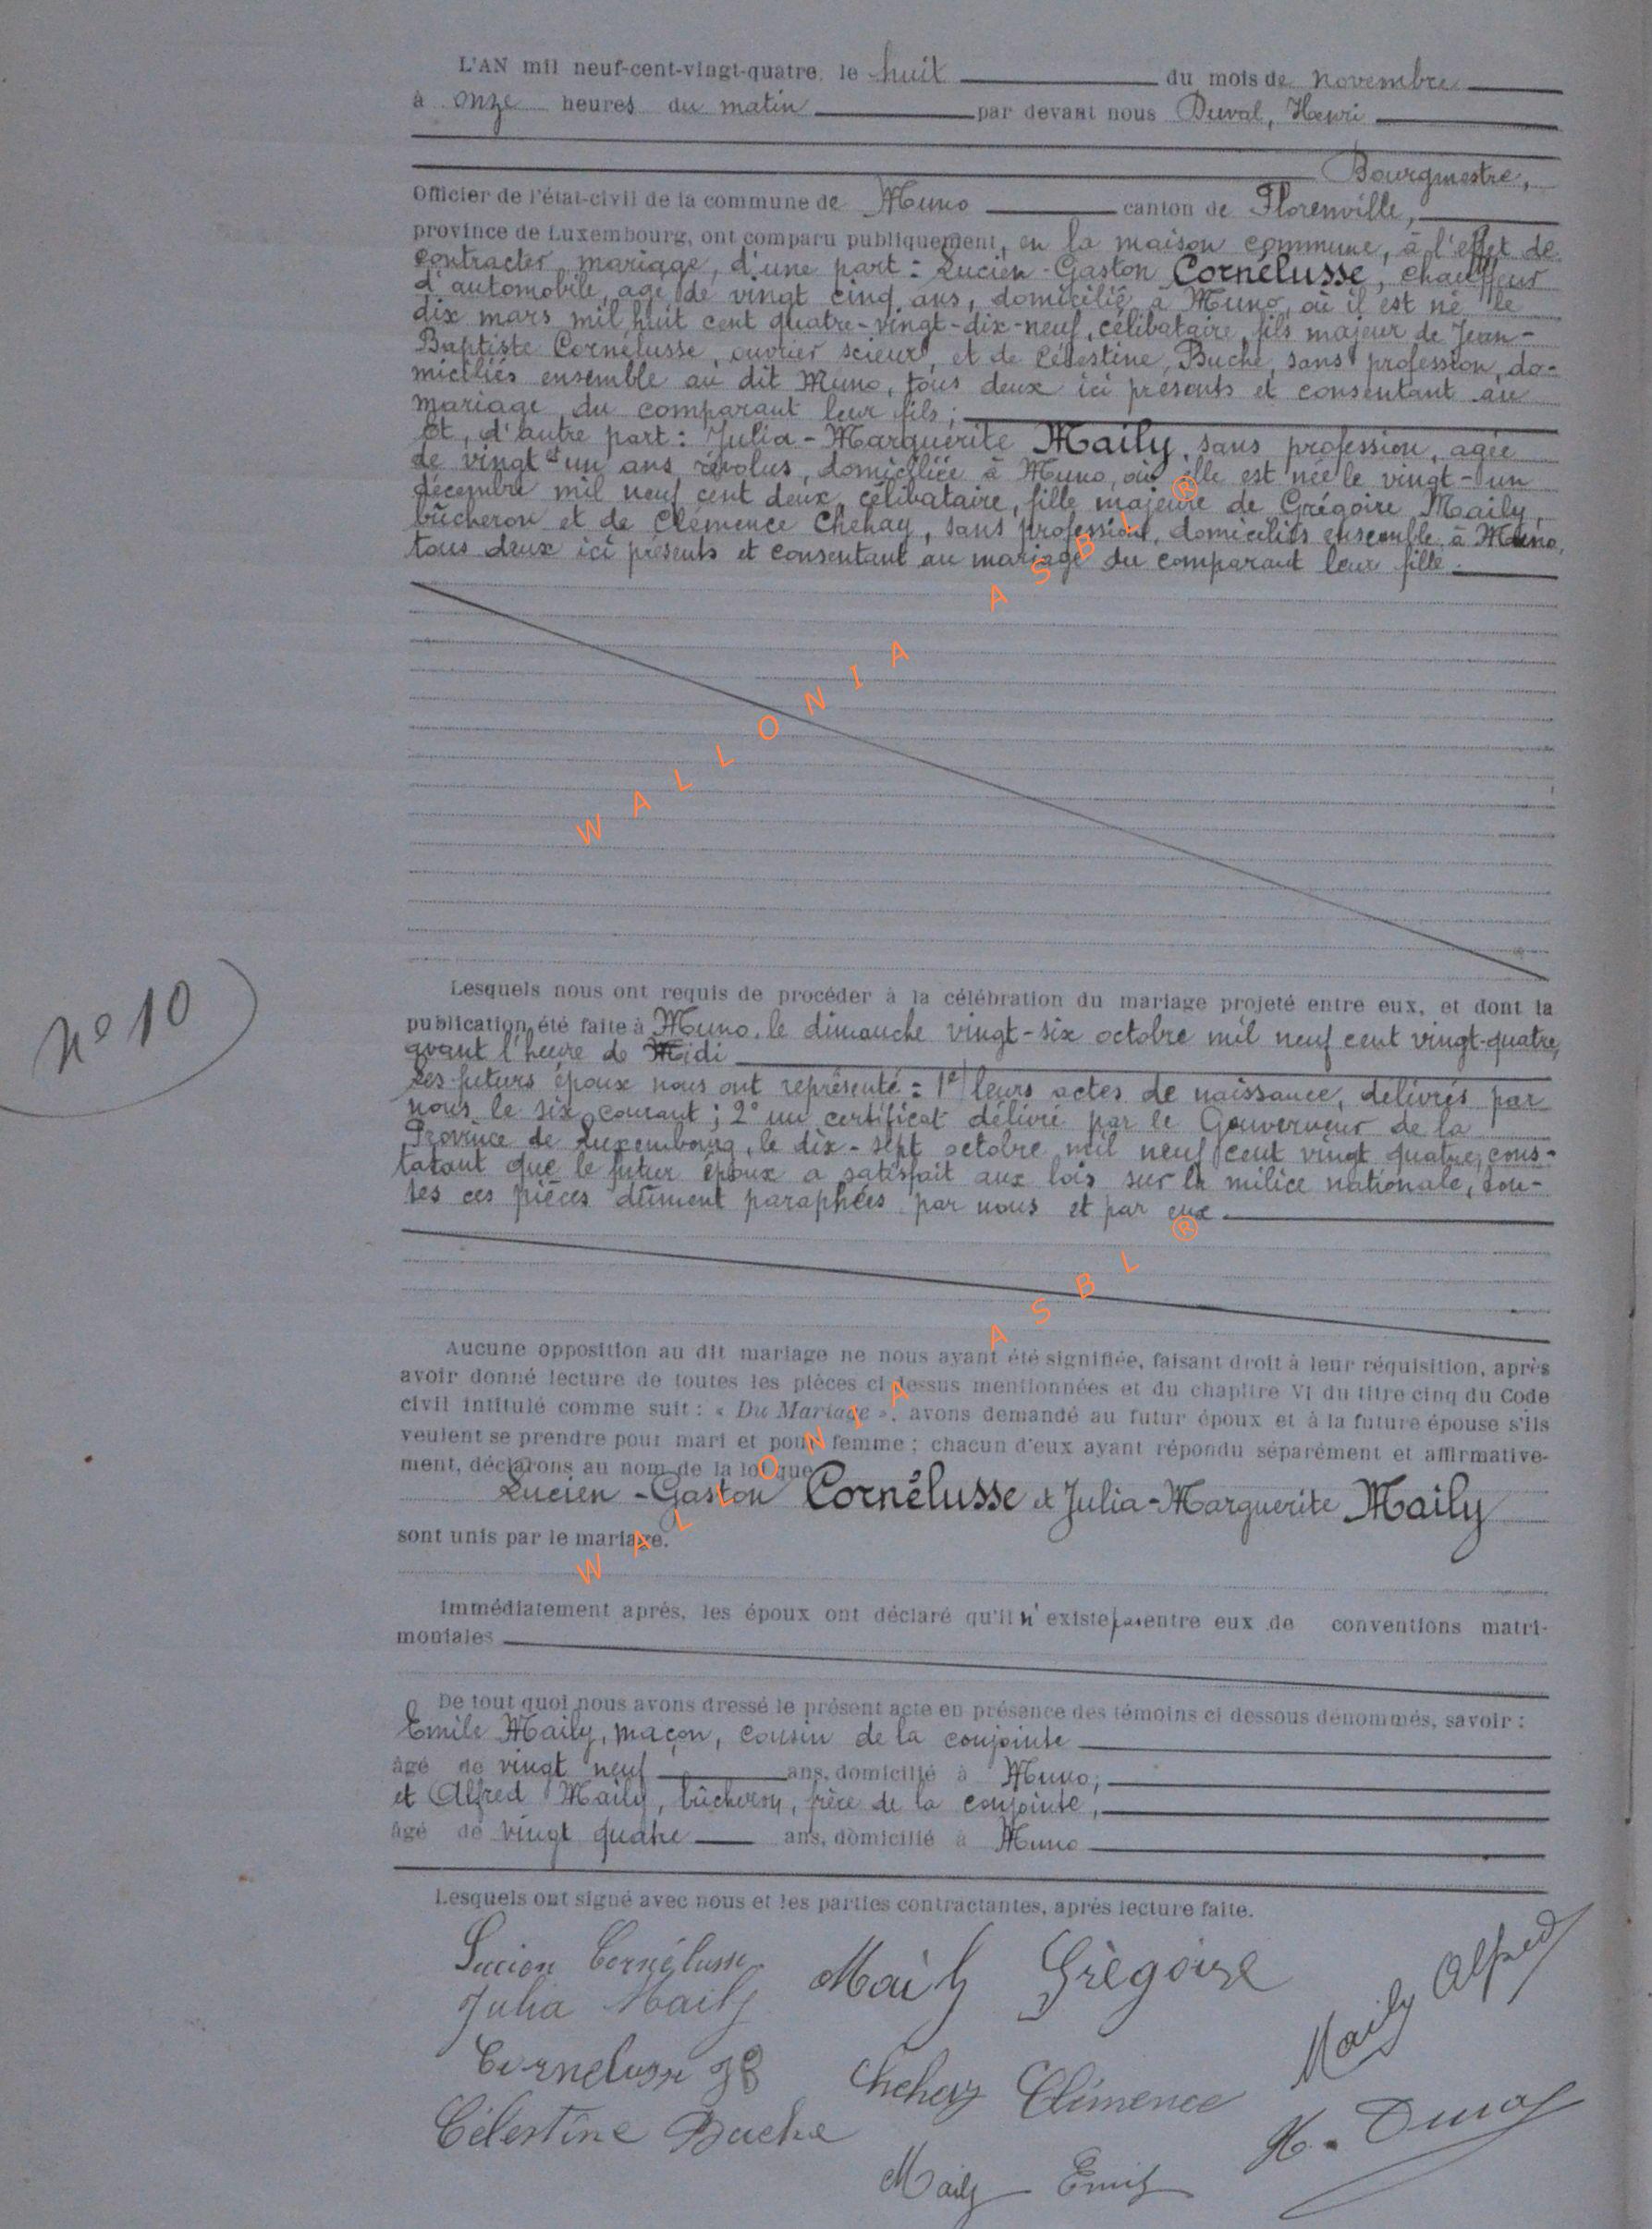 L'AN mil neuf-cent-vingt-quatre, le huit du mois de novembre
à onze heures du matin par devant nous Duval, Henri
Bourgmestre,
Officier de l'état-civil de la commune de Muno canton de Florenville,
province de Luxembourg, ont comparu publiquement, en la maison commune, à l'effet de
contracter mariage, d'une part : Lucien-Gaston Cornélusse, chauffeur
d'automobile, agé de vingt cinq ans, domicilié à Muno, où il est né le
dix mars mil huit cent quatre-vingt-dix-neuf, célibataire, fils majeur de Jean-
Baptiste Cornélusse, ouvrier scieur, et de Célestine Buche, sans profession, do-
miciliés ensemble au dit Muno, tous deux ici présents et consentant au
mariage du comparant leur fils ;
Et, d'autre part : Julia-Marguerite Maily, sans profession, agée
de vingt et un ans révolus, domiciliée à Muno, où elle est née le vingt-un
décembre mil neuf cent deux, célibataire, fille majeure de Grégoire Maily,
bûcheron et de Clémence Chehay, sans profession, domiciliés ensemble à Muno,
tous deux ici présents et consentant au mariage du comparant leur fille.
WALLONIA ASBL ®
N° 10
Lesquels nous ont requis de procéder à la célébration du mariage projeté entre eux, et dont la
publication été faite à Muno, le dimanche vingt-six octobre mil neuf cent vingt-quatre,
avant l'heure de Midi
Les futurs époux nous ont représenté : 1e) leurs actes de naissance, délivrés par
nous le six courant ; 2° un certificat délivré par le Gouverneur de la
Province de Luxembourg, le dix-sept octobre mil neuf cent vingt quatre, cons-
tatant que le futur époux a satisfait aux lois sur la milice nationale, tou-
tes ces pièces dûment paraphées par nous et par eux.
Aucune opposition au dit mariage ne nous ayant été signifiée, faisant droit à leur réquisition, après
avoir donné lecture de toutes les pièces ci dessus mentionnées et du chapitre VI du titre cinq du Code
civil intitulé comme suit : « Du Mariage », avons demandé au futur époux et à la future épouse s'ils
veulent se prendre pour mari et pour femme ; chacun d'eux ayant répondu séparément et affirmative-
ment, déclarons au nom de la loi que
Lucien-Gaston Cornélusse et Julia-Marguerite Maily
sont unis par le mariage.
WALLONIA ASBL ®
Immédiatement après, les époux ont déclaré qu'il n'existe pas entre eux de conventions matri-
moniales
De tout quoi nous avons dressé le présent acte en présence des témoins ci dessous dénommés, savoir :
Emile Maily, maçon, cousin de la conjointe
âgé de vingt neuf ans, domicilié à Muno,
et Alfred Maily, bûcheron, frère de la conjointe,
âgé de vingt quatre ans, domicilié à Muno
Lesquels ont signé avec nous et les parties contractantes, après lecture faite.
Lucien Cornélusse Maily Grégoire Maily Alfred
Julia Maily
Cornelusse JB Chehay Clémence H. Duval
Célestine Buche
Maily Emile